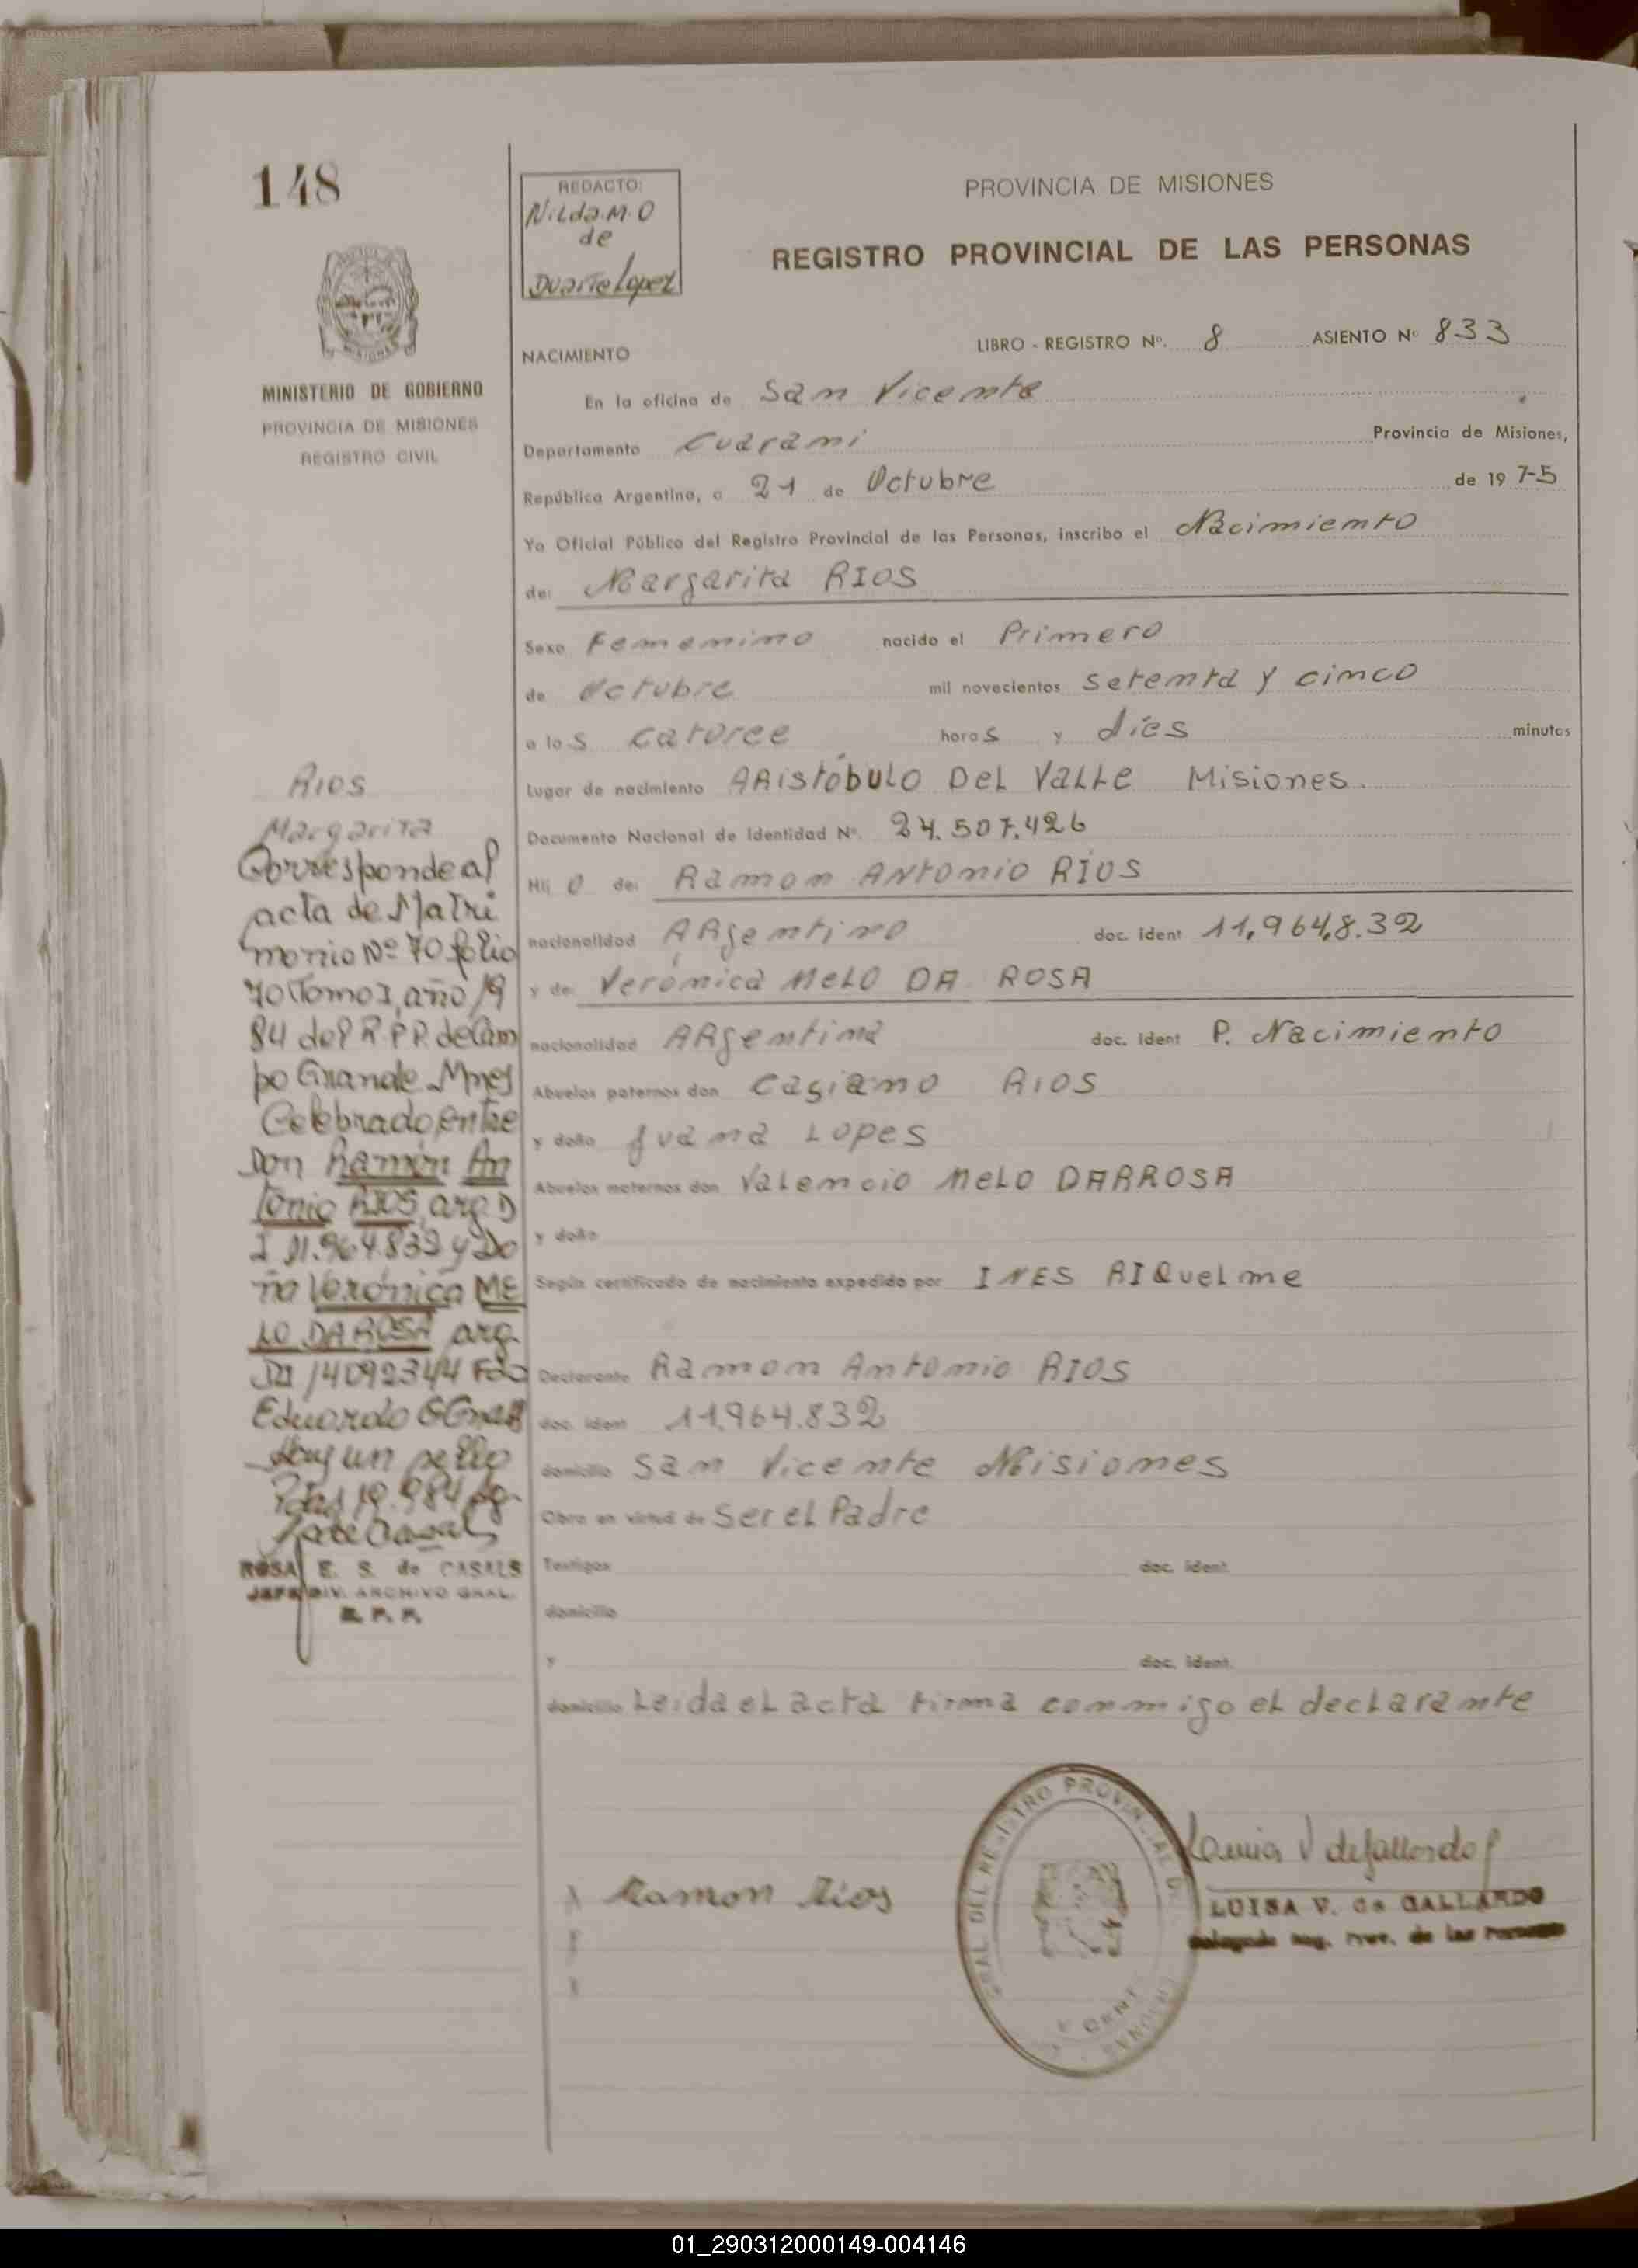 148
REDACTO:
Nilda.M.O
de
Duarte Lopez
PROVINCIA DE MISIONES
REGISTRO PROVINCIAL DE LAS PERSONAS
MISIONES
MINISTERIO DE GOBIERNO
PROVINCIA DE MISIONES
REGISTRO CIVIL
NACIMIENTO
LIBRO - REGISTRO Nº. 8 ASIENTO Nº 833
En la oficina de San Vicente
Departamento Cuarami Provincia de Misiones,
República Argentina, a 21 de Octubre de 1975
Yo Oficial Público del Registro Provincial de las Personas, inscribo el Nacimiento
de: Margarita RIOS
Sexo Femenino nacido el Primero
de Octubre mil novecientos setenta y cinco
a las catorce horas y díes minutos
Lugar de nacimiento ARistóbulo DEL VALLE Misiones.
Documento Nacional de Identidad Nº. 24.507.426
Hijo de: Ramon ANTONIO RÍOS
nacionalidad ARgentino doc. ident 11.964.8.32
y de: Verónica MELO DA ROSA
nacionalidad ARgentina doc. ident P. Nacimiento
Abuelos paternos don Casiano RIOS
y doña Juana LOPES
Abuelos maternos don Valencio MELO DARROSA
y doña
Según certificado de nacimiento expedido por INES RIQuelme
Declarante Ramon Antonio RIOS
doc. ident 11.964.832
domicilio San Vicente Misiones
Obra en virtud de Ser el Padre
Testigos doc. ident.
domicilio
y doc. ident.
domicilio Leida el acta firma conmigo el declarante
RIOS
Margarita
Corresponde al
acta de Matri
monio Nº 70 folio
70 Tomo I, año 19
84 del R.P.P. de Cam
po Grande Mnes
Celebrado entre
Don Ramón An
tonio RIOS, arg. D
I 11.964.832 y Do
ña Verónica ME
LO DA ROSA arg.
DI 14092344 Fdo
Eduardo
Hay un sello
ROSA E. S. de CASALS
JEFE DIV. ARCHIVO GRAL.
R. P. P.
Ramon Rios
GRAL DEL REGISTRO PROVINCIAL DE
LUISA V. de GALLARDO
Delegada Reg. Prov. de las Personas
01_290312000149-004146